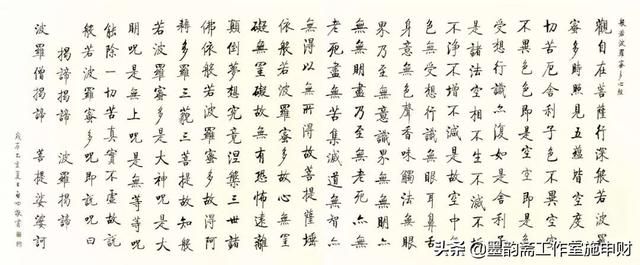 般若波羅蜜多心經
觀自在菩薩行深般若波羅
蜜多時照見五蘊皆空度一
切苦厄舍利子色不異空空
不異色色即是空空即是色
受想行識亦復如是舍利子
是諸法空相不生不滅不垢
不淨不增不減是故空中無
色無受想行識無眼耳鼻舌
身意無色聲香味觸法無眼
界乃至無意識界無無明亦
無無明盡乃至無老死亦無
老死盡無苦集滅道無智亦
無得以無所得故菩提薩埵
依般若波羅蜜多故心無罣
礙無罣礙故無有恐怖遠離
顛倒夢想究竟涅槃三世諸
佛依般若波羅蜜多故得阿
耨多羅三藐三菩提故知般
若波羅蜜多是大神呪是大
明呪是無上呪是無等等呪
能除一切苦真實不虛故說
般若波羅蜜多呪即說呪曰
揭諦揭諦 波羅揭諦
波羅僧揭諦 菩提娑婆訶
敬書
头条 @墨韵斋工作室施申财